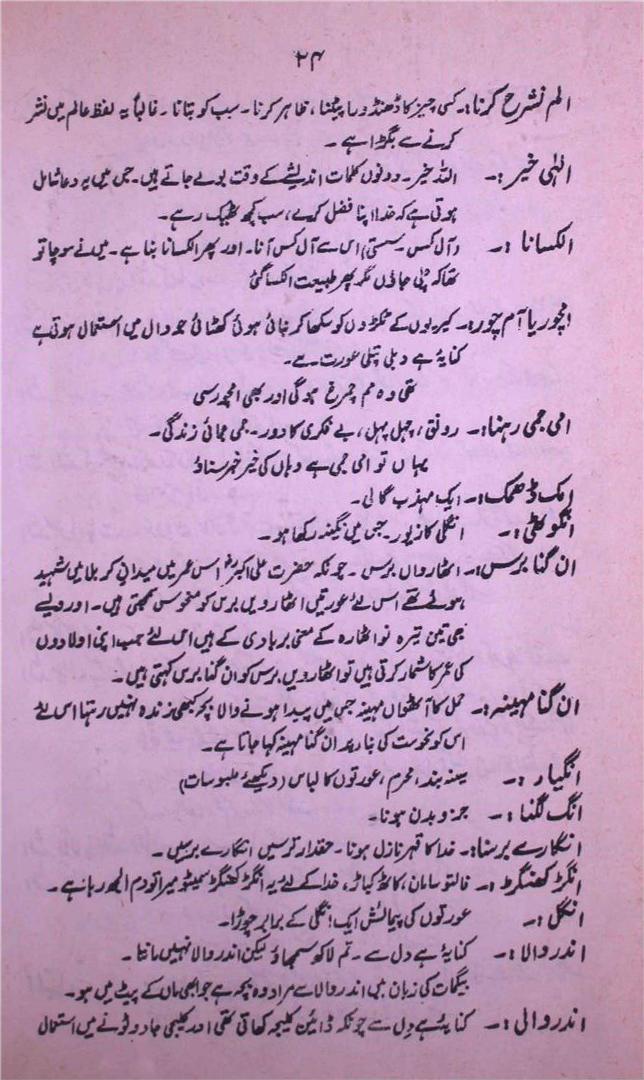 ۲۴
الم نشرح کرنا:۔ کسی چیز کا ڈھنڈورا پیٹنا، ظاہر کرنا۔ سب کو بتانا۔ غالباً یہ لفظ عالم میں نشر
کرنے سے بگڑا ہے۔
الٰہی خیر:۔ اللہ خیر۔ دونوں کلمات اندیشے کے وقت بولے جاتے ہیں۔ جس میں یہ دعا شامل
ہوتی ہے کہ خدا اپنا فضل کرے، سب کچھ ٹھیک رہے۔
الکسانا:۔ (آل کس۔ سستی) اس سے آل کس آنا۔ اور پھر الکسانا بنا ہے۔ میں نے سوچا تو
تھا کہ چلی جاؤں مگر پھر طبیعت الکسا گئی
امچور یا آم چور:۔ کیریوں کے ٹکڑوں کو سکھا کر بنائی ہوئی کھٹائی جو دال میں استعمال ہوتی ہے
کنایہ ہے دبلی پتلی عورت سے۔
تھی وہ مم چرخ ہو گئی اور بھی امچور سی
امی جمی رہنا:۔ رونق، چہل پہل، بے فکری کا دور۔ جمی جمائی زندگی۔
یہاں تو امی جمی ہے وہاں کی خیر خبر سناؤ
امک ڈھمک:۔ ایک مہذب گالی۔
انگوٹھی:۔ انگلی کا زیور۔ جس میں نگینہ رکھا ہو۔
ان گنا برس:۔ اٹھارواں برس۔ چونکہ حضرت علی اکبر اس عمر میں میدانِ کربلا میں شہید
ہوئے تھے اس لئے عورتیں اٹھارویں برس کو منحوس سمجھتی ہیں۔ اور ویسے
بھی تین تیرہ نو اٹھارہ کے معنی بربادی کے ہیں اس لئے جب اپنی اولادوں
کی عمر کا شمار کرتی ہیں تو اٹھارویں برس کو ان گنا برس کہتی ہیں۔
ان گنا مہینہ:۔ حمل کا آٹھواں مہینہ جس میں پیدا ہونے والا بچہ کبھی زندہ نہیں رہتا اس لئے
اس کو نحوست کی بنا پر ان گنا مہینہ کہا جاتا ہے۔
انگیا:۔ سینہ بند، محرم، عورتوں کا لباس (دیکھئے ملبوسات)
انگ لگنا:۔ جزوِ بدن ہونا۔
انگارے برسنا:۔ خدا کا قہر نازل ہونا۔ حقدار ترسیں انگارے برسیں۔
انگڑ کھنگڑ:۔ فالتو سامان، کاٹھ کباڑ، خدا کے لئے یہ انگڑ کھنگڑ سمیٹو میرا تو دم الجھ رہا ہے۔
انگل:۔ عورتوں کی پیمائش ایک انگلی کے برابر چوڑا۔
اندر والا:۔ کنایہ ہے دل سے۔ تم لاکھ سمجھاؤ لیکن اندر والا نہیں مانتا۔
بیگمات کی زبان میں اندر والا سے مراد وہ بچہ ہے جو ابھی ماں کے پیٹ میں ہو۔
اندر والی:۔ کنایہ ہے دِل سے چونکہ ڈائین کلیجہ کھاتی تھی اور کلیجی جادو ٹونے میں استعمال